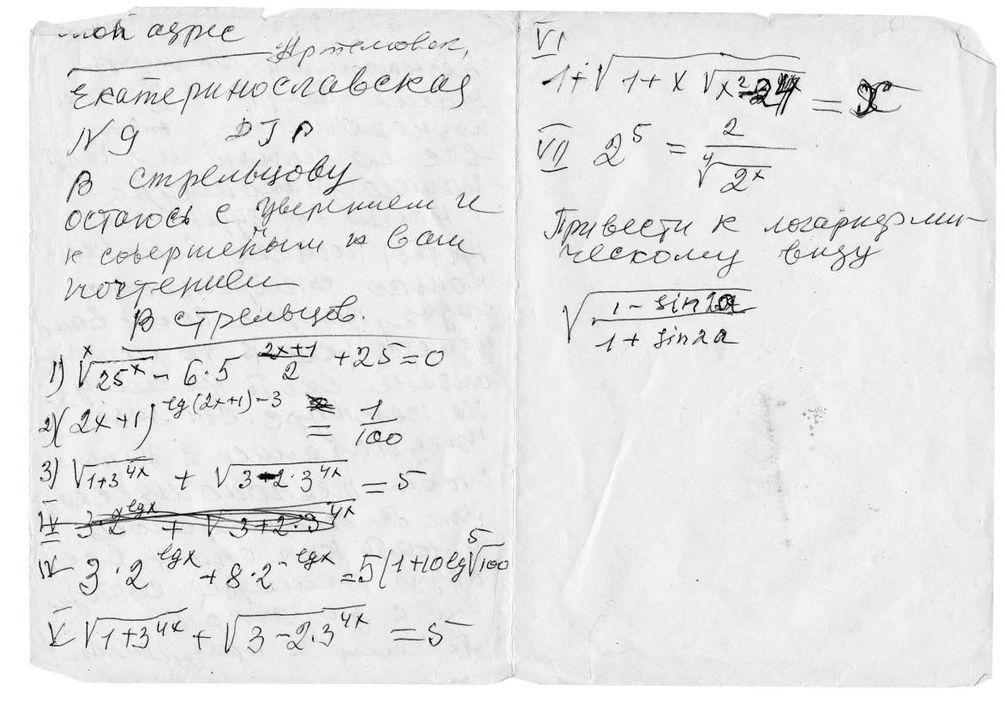 мой адрес
Артемовск,
Екатеринославская
N 9
В стрельцову
остаюсь с уверением и
к совершеным к вам
почтением
В стрельцов.
1) \sqrt[x]{25^x} - 6·5^{\frac{2x+1}{2}} + 25 = 0
2) (2x+1)^{lg(2x+1)-3} = \frac{1}{100}
3) \sqrt{1+3^{4x}} + \sqrt{3-2·3^{4x}} = 5
IV 3·2^{lgx} + \sqrt{3+2·3^{4x}}
IV 3·2^{lgx} + 8·2^{-lgx} = 5(1+10lg\sqrt[5]{100}
V \sqrt{1+3^{4x}} + \sqrt{3-2·3^{4x}} = 5
VI
1+\sqrt{1+x\sqrt{x^2-24}} = x
VII 2^5 = \frac{2}{\sqrt[4]{2^x}}
Привести к логарифми-
ческому виду
\sqrt{\frac{1-sin2a}{1+sin2a}}